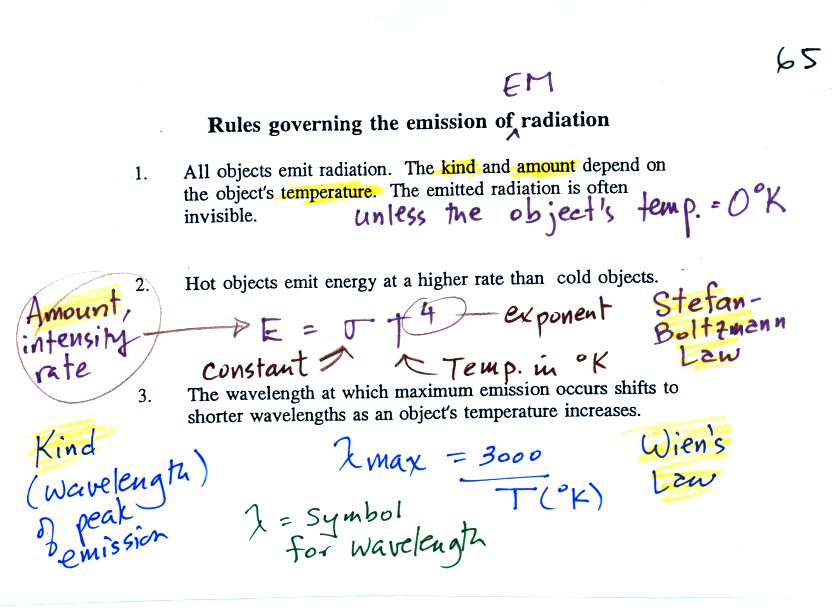 65
EM
Rules governing the emission of ^ radiation
1. All objects emit radiation. The kind and amount depend on
the object's temperature. The emitted radiation is often
invisible. unless the object's temp. = 0°K
2. Hot objects emit energy at a higher rate than cold objects.
Amount,
intensity
rate
E = σ T⁴
exponent
constant
Temp. in °K
Stefan-
Boltzmann
Law
3. The wavelength at which maximum emission occurs shifts to
shorter wavelengths as an object's temperature increases.
Kind
(wavelength)
of peak
emission
λmax = 3000
T(°K)
Wien's
Law
λ = symbol
for wavelength